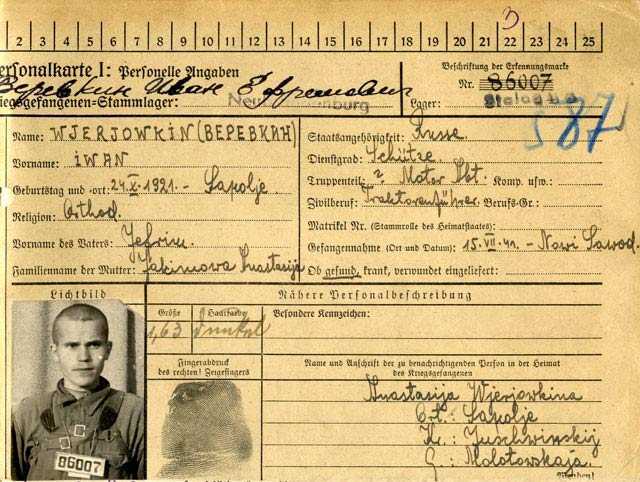 3
2 3 4 5 6 7 8 9 10 11 12 13 14 15 16 17 18 19 20 21 22 23 24 25
ersonalkarte I: Personelle Angaben
Веревкин Иван Ефремович
iegsgefangenen-Stammlager:
Beschriftung der Erkennungsmarke
Nr. 86007
Lager: Stalag
587
Name: WJERJOWKIN (ВЕРЕВКАН)
Vorname: IWAN
Geburtstag und -ort: 24.X.1921.- Sapolje
Religion: Orthod.
Vorname des Vaters: Jefrim
Familienname der Mutter: Jakimowa Anastasija
Staatsangehörigkeit: Russe
Dienstgrad: Schütze
Truppenteil: ? Motor Abt. Komp. usw.:
Zivilberuf: Traktorenführer Berufs-Gr.:
Matrikel Nr. (Stammrolle des Heimatstaates):
Gefangennahme (Ort und Datum): 15.VII.41. - Nowi Sawod.
Ob gesund, krank, verwundet eingeliefert:
Lichtbild
86007
Nähere Personalbeschreibung
Größe
1,63
Haarfarbe
dunkel
Besondere Kennzeichen:
Fingerabdruck
des rechten! Zeigefingers
Name und Anschrift der zu benachrichtigenden Person in der Heimat
des Kriegsgefangenen
Anastasija Wjerjowkina
Ort.: Sapolje
Kr.: Juschwinskij
G.: Molotowskaja.